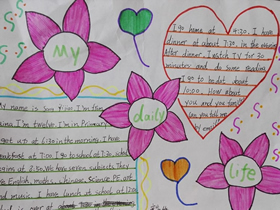 My
daily
life
I go home at 4:30. I have
dinner at about 7:20. In the evening
after dinner. I watch TV for 30
minutes and do some reading
I go to bed about
10:00. How about
you and your family
can you tell me
My name is Sun I'm from
China. I'm twelve I'm in Primary
get up at 6:30 in the morning. I have
breakfast at 7:00. I go to school at 7:30. when
begins at 8:20. We have seven subjects. They
English, maths, Chinese, Science, PE, art
and music. I have lunch at school at 12:00
is over at about